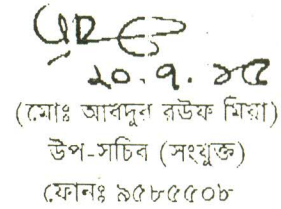 ২০.৭.১৫
(মোঃ আবদুর রউফ মিয়া)
উপ-সচিব (সংযুক্ত)
(ফোনঃ ৯৫৮৫৫০৮